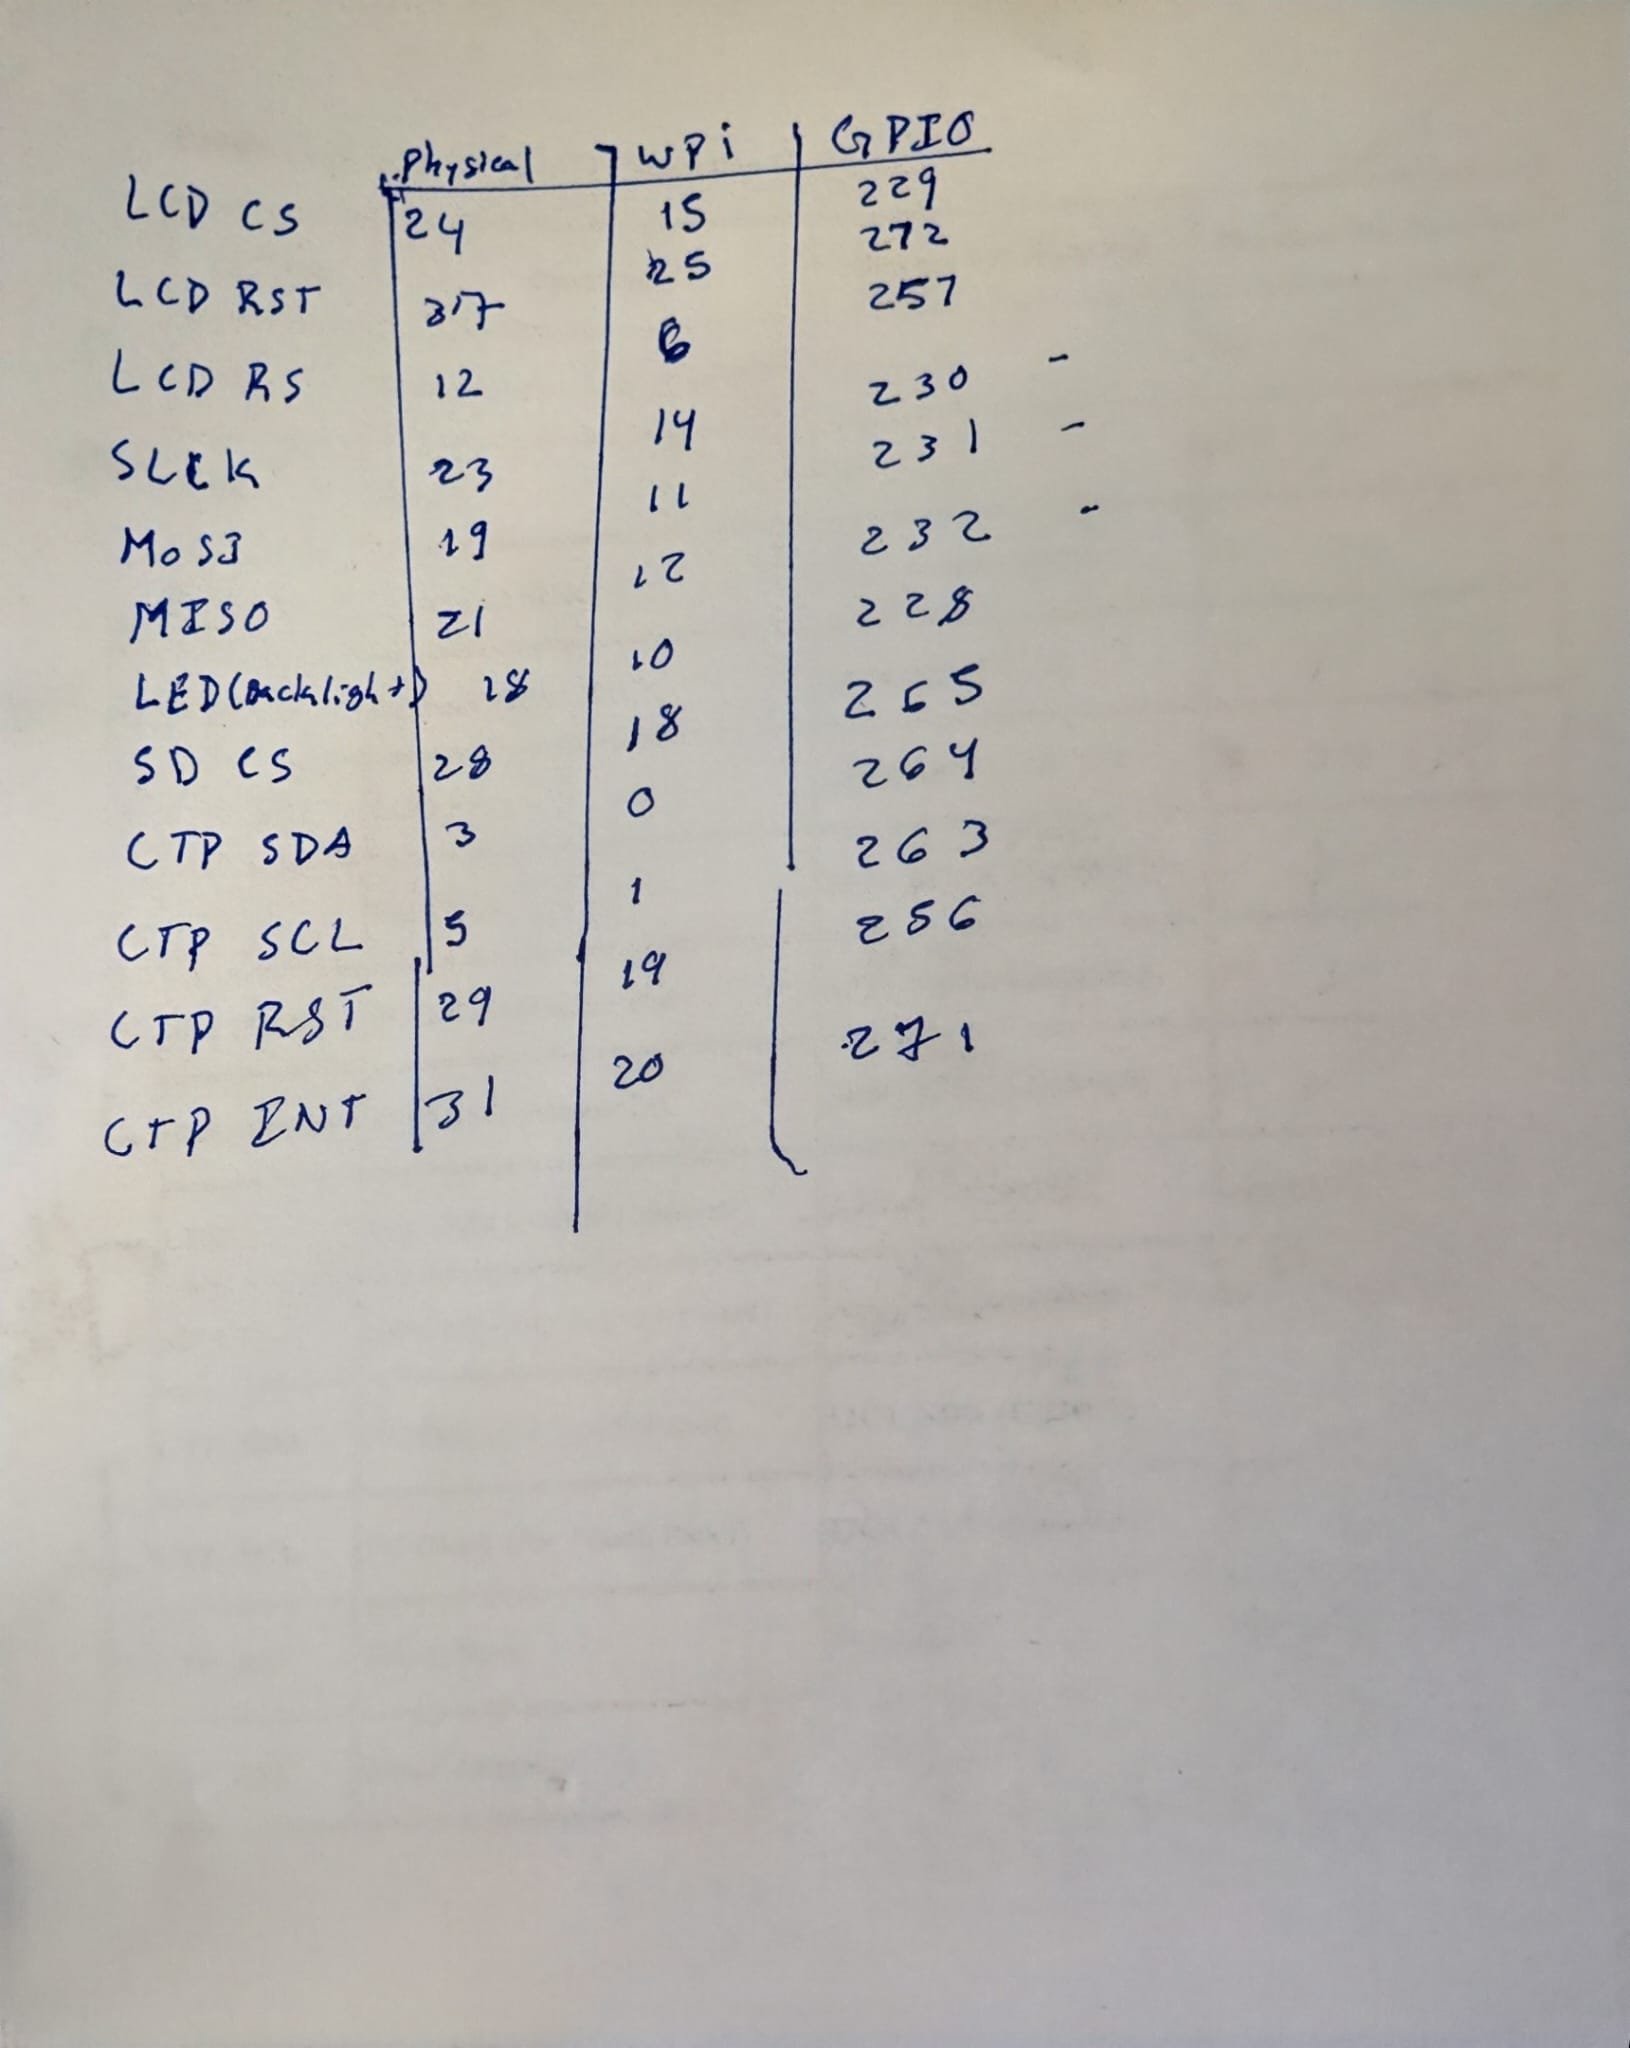 Physical WPi GPIO
LCD CS 24 15 229
LCD RST 37 25 272
LCD RS 12 6 257
SLCK 23 14 230 -
MOS3 19 11 231 -
MISO 21 12 232 -
LED(Backlight) 18 10 228
SD CS 28 18 265
CTP SDA 3 0 264
CTP SCL 5 1 263
CTP RST 29 19 256
CTP INT 31 20 271